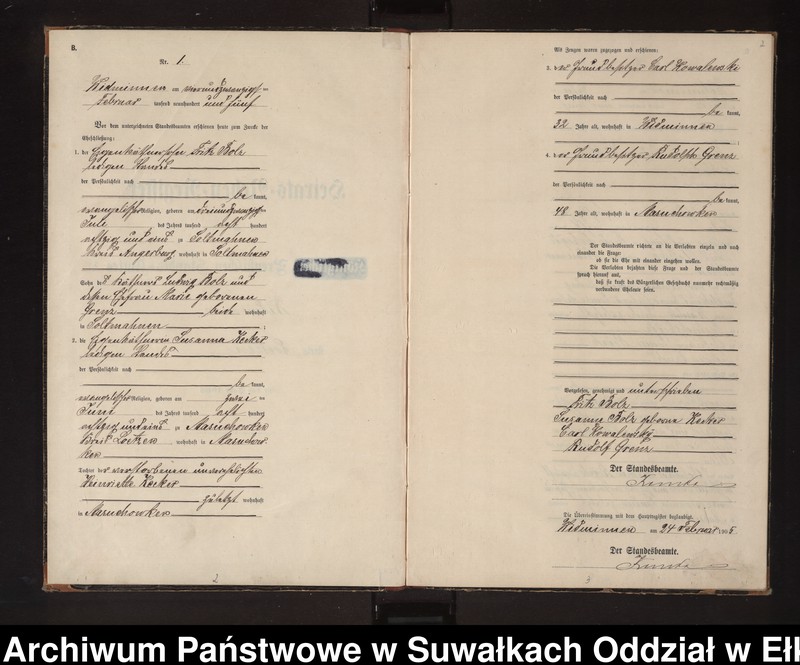 B.
Nr. 1.
Widminnen am vierundzwanzigsten
Februar tausend neunhundert und fünf
Vor dem unterzeichneten Standesbeamten erschienen heute zum Zwecke der
Eheschließung:
1. der Eigenkäthnersohn Fritz Bolz
ledigen Standes
der Persönlichkeit nach
be kannt,
evangelischer Religion, geboren am dreiundzwanzigsten
Juli des Jahres tausend acht hundert
achtzig und eins zu
Kreis Angerburg, wohnhaft in Soltmahnen
Sohn des Käthners Ludwig Bolz und
dessen Ehefrau Marie geborenen
Grenz beide wohnhaft
in Soltmahnen ;
2. die Susanna Kerker
ledigen Standes
der Persönlichkeit nach
be kannt,
evangelischer Religion, geboren am zwei ten
Juni des Jahres tausend acht hundert
achtzig und eins zu Maruchowken
Kreis Loetzen, wohnhaft in Maruchow-
ken
Tochter der verstorbenen unverehelichten
Henriette Kerker
zuletzt wohnhaft
in Maruchowken
2
2
Als Zeugen waren zugezogen und erschienen:
3. der Grundbesitzer Carl Kowalewski
der Persönlichkeit nach
be kannt,
32 Jahre alt, wohnhaft in Widminnen
;
4. der Grundbesitzer Rudolph Grenz
der Persönlichkeit nach
be kannt,
48 Jahre alt, wohnhaft in Maruchowken
Der Standesbeamte richtete an die Verlobten einzeln und nach
einander die Frage:
ob sie die Ehe mit einander eingehen wollen.
Die Verlobten bejahten diese Frage und der Standesbeamte
sprach hierauf aus,
daß sie kraft des Bürgerlichen Gesetzbuchs nunmehr rechtmäßig
verbundene Eheleute seien.
Vorgelesen, genehmigt und unterschrieben
Fritz Bolz
Susanna Bolz geborene Kerker
Carl Kowalewsky
Rudolf Grenz
Der Standesbeamte.
Die Übereinstimmung mit dem Hauptregister beglaubigt.
Widminnen am 24 Februar 1905
Der Standesbeamte.
3
Archiwum Państwowe w Suwałkach Oddział w Ełk